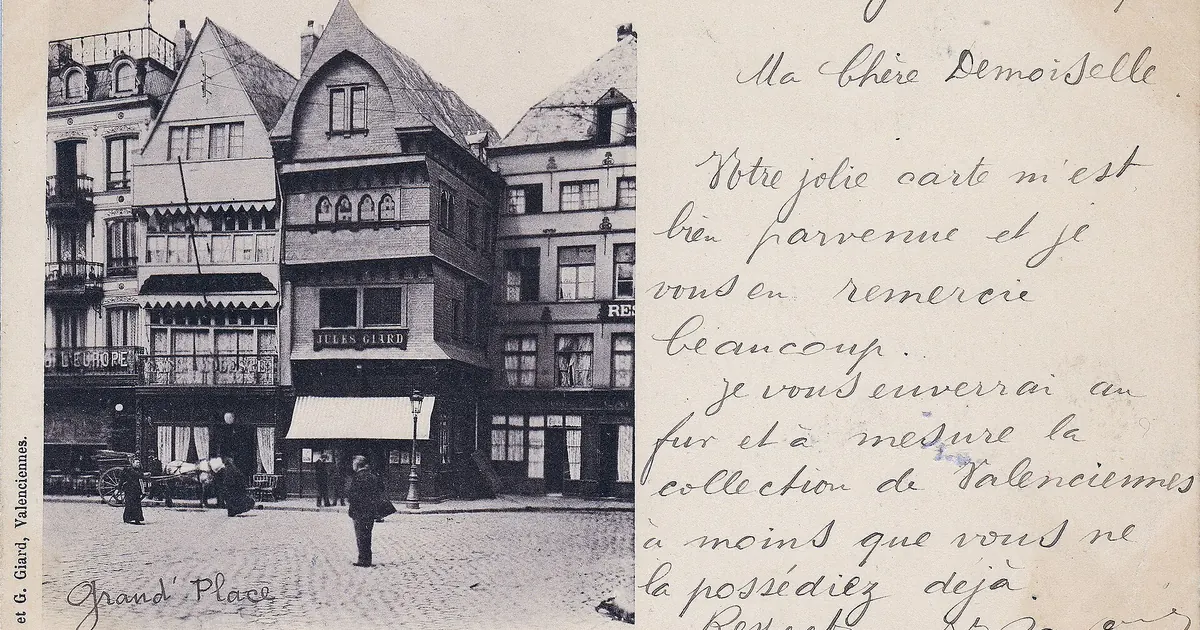 L'EUROPE
JULES GIARD
RES
et G. Giard, Valenciennes.
Grand' Place
Ma Chère Demoiselle
Votre jolie carte m'est
bien parvenue et je
vous en remercie
beaucoup.
Je vous enverrai au
fur et à mesure la
collection de Valenciennes
à moins que vous ne
la possédiez déjà